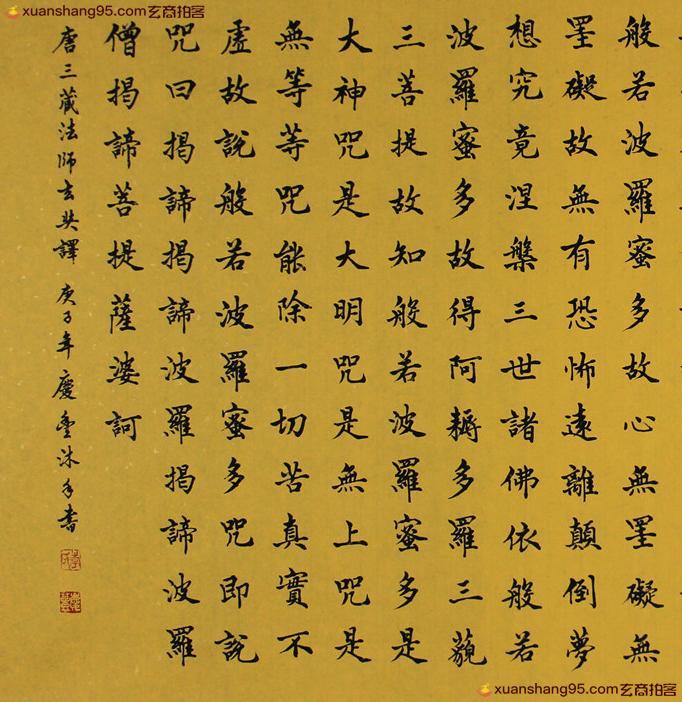 xuanshang95.com玄商拍客
xuanshang95.com玄商拍客
般若波羅蜜多故心無罣礙無
罣礙故無有恐怖遠離顛倒夢
想究竟涅槃三世諸佛依般若
波羅蜜多故得阿耨多羅三藐
三菩提故知般若波羅蜜多是
大神咒是大明咒是無上咒是
無等等咒能除一切苦真實不
虛故說般若波羅蜜多咒即說
咒曰揭諦揭諦波羅揭諦波羅
僧揭諦菩提薩婆訶
唐三藏法師玄奘譯 庚子年慶沐手書
xuanshang95.com玄商拍客